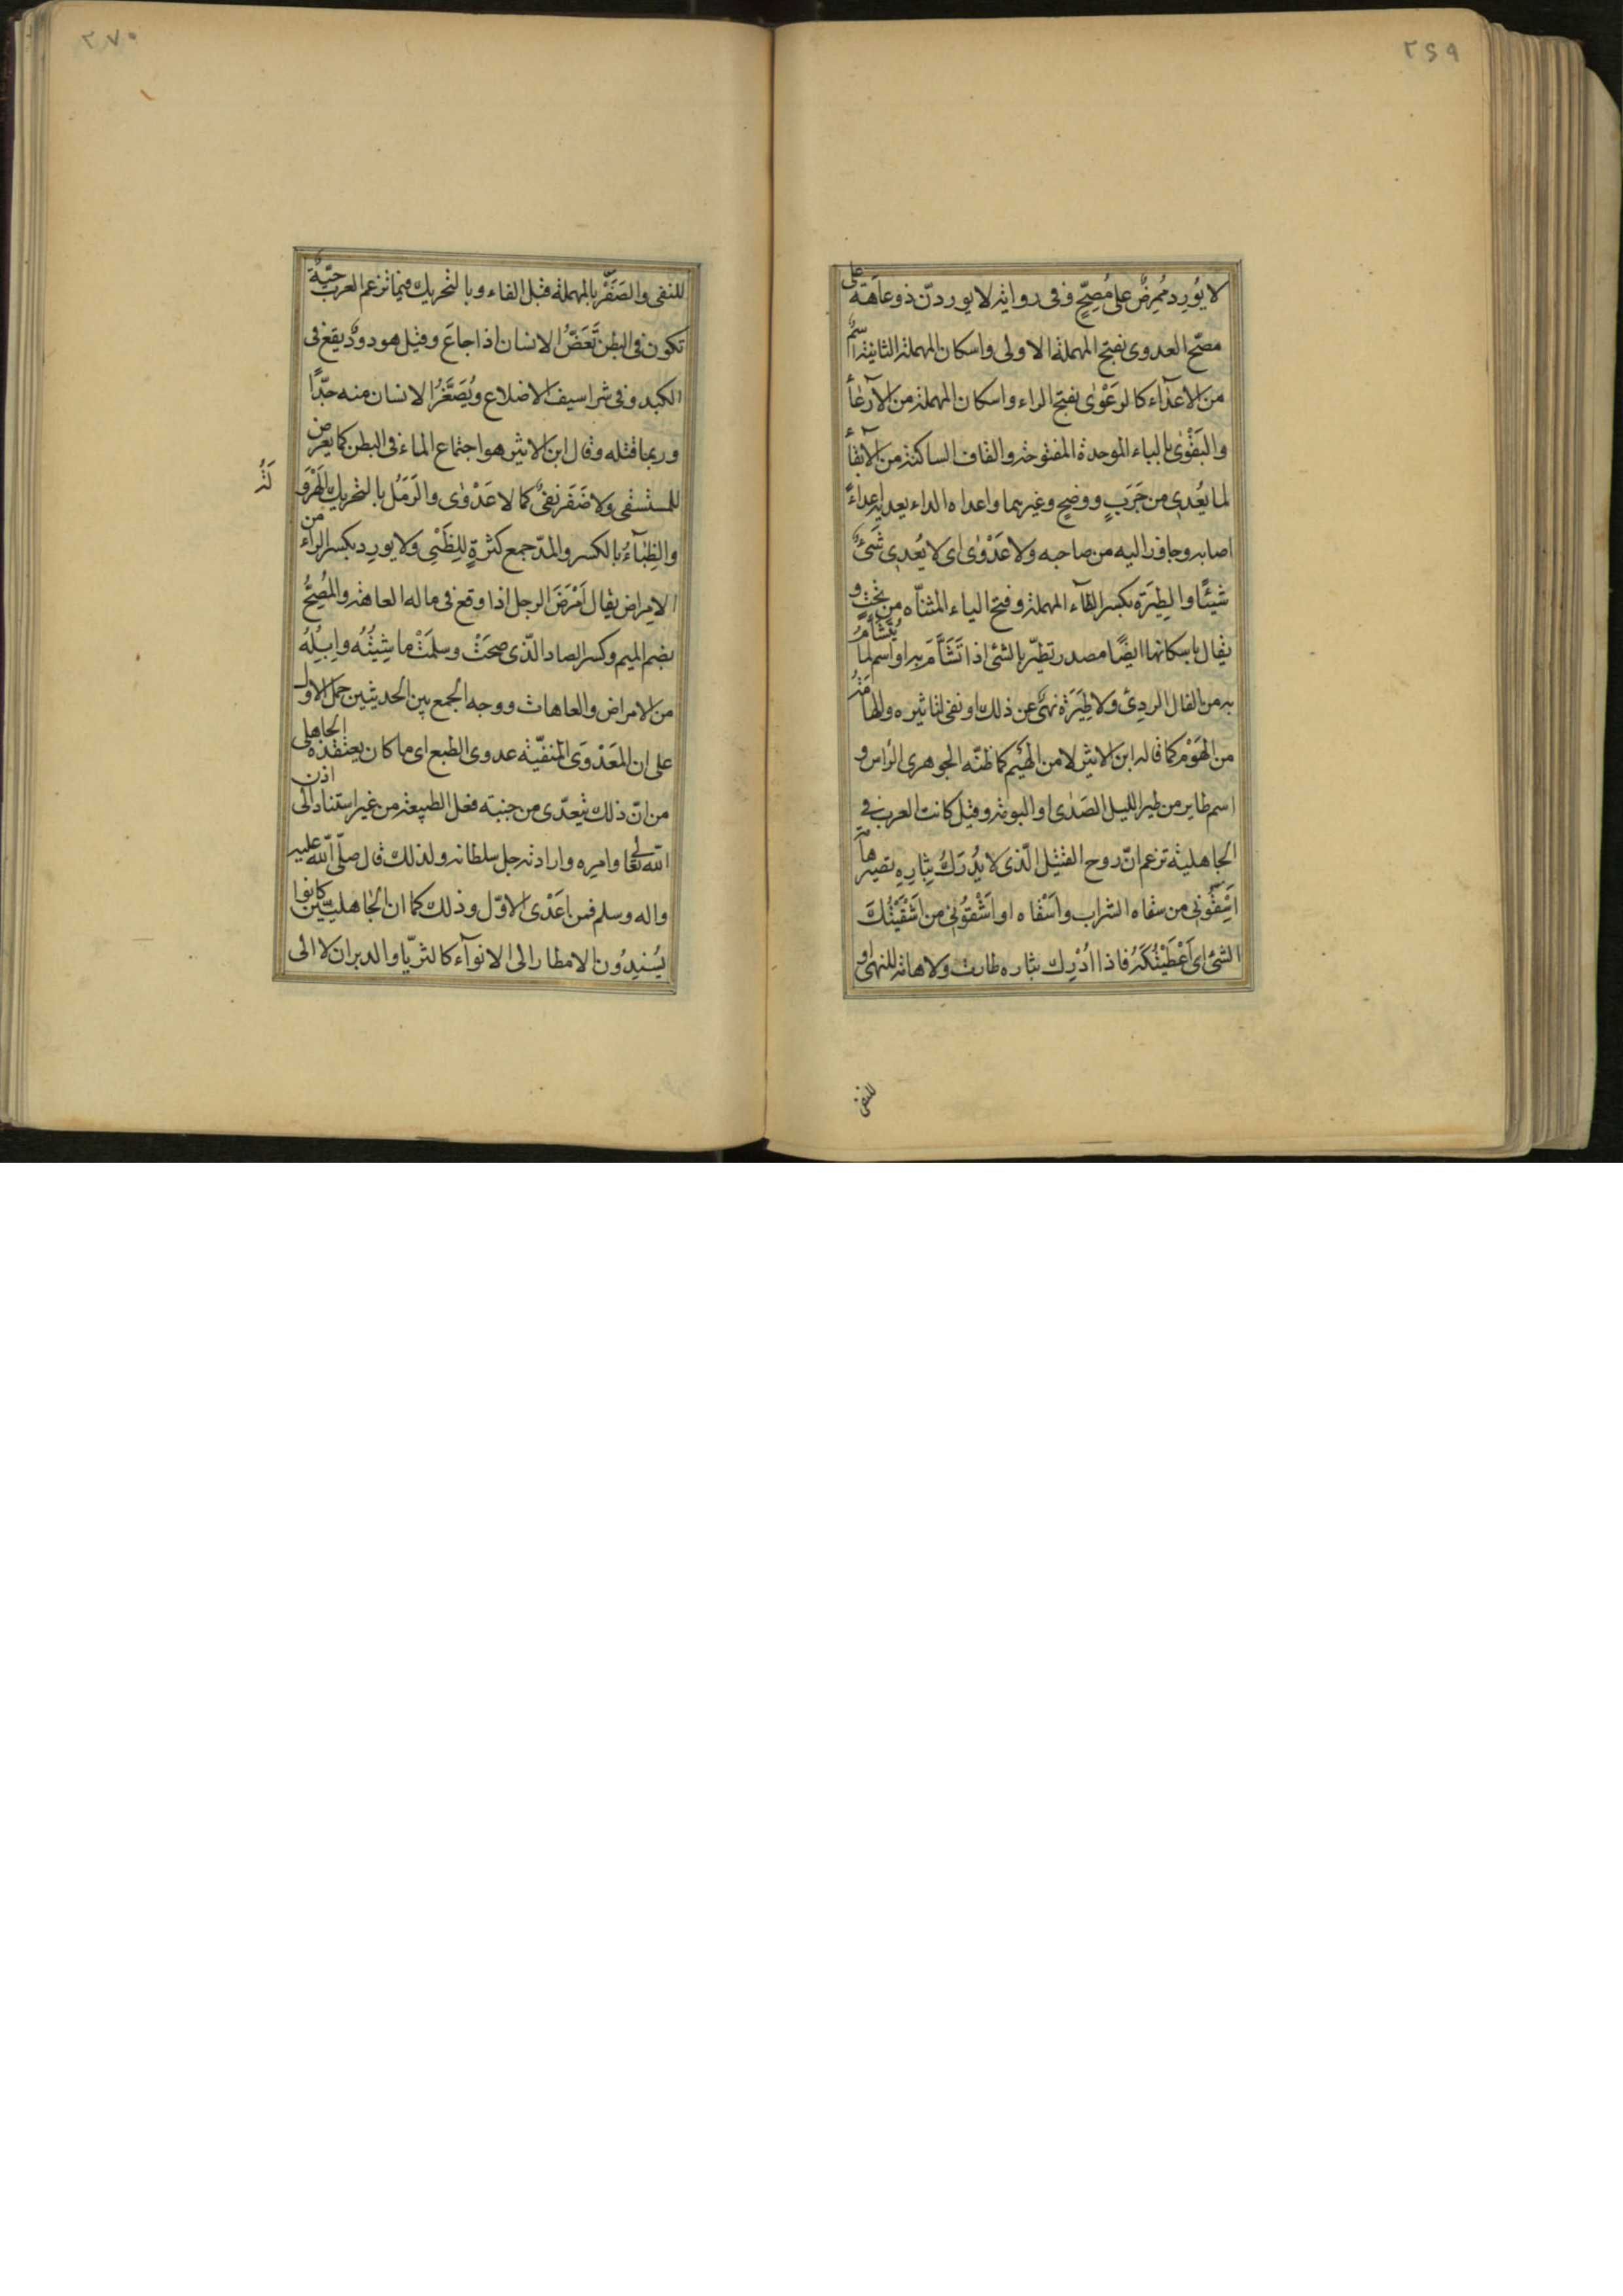 ٢٦٩
لا يُورِد مُمرِضٌ على مُصِحٍّ وفى رواية لا يوردنّ ذو عاهة على
مصحّ العدوى بفتح المهملة الاولى واسكان المهملة الثانية اسمٌ
من الاعدآء كالرَعْوٰى بفتح الراء واسكان المهملة من الارعآء
والبَقْوٰى بالباء الموحدة المفتوحة والقاف الساكنة من الابقآء
لما يُعْدِى من جَرَبٍ ووضحٍ وغيرهما واعداه الداء يعديه اعداءً
اصابه وجاوز اليه من صاحبه ولا عَدْوٰى اى لا يُعدِى شَىءٌ
شيئًا والطِيَرَة بكسر الطآء المهملة وفتح الياء المثناه من تحتٍ و
يقال باسكانها ايضًا مصدر تطيّر بالشئ اذا تَشَأَّمَ به او اسم لما يُتَشَأَّمُ
به من الفال الردئ ولا طِيَرَة نهىٌ عن ذلك او نفى لتاثيره والهامَةُ
من الهَوْم كما قاله ابن الاثير لا من الهَيْم كما ظنّه الجوهرى الرأس و
اسم طاير من طير الليل الصَدٰى او البومة وقيل كانت العرب فى
الجاهلية تزعم انّ روح القتيل الّذى لا يُدْرَكُ بِثارِهِ تصير هامة
اَسْقُونِى من سقاه الشراب واَسْقاه او اَشْقُونِى من اَشْقَيْتُكَ
الشئ اى اَعْطَيْتُكَهُ فاذا اُدْرِك بثاره طارت ولا هامة للنهى او
للنفى
٢٧٠
للنفى والصَفَرُ بالمهملة قبل الفاء وبالتحريك فيما تزعم العرب حيّةٌ
تكون فى البطن تَعَضُّ الانسان اذا جاعَ وقيل هو دودٌ يقع فى
الكبد وفى شراسيف الاضلاع ويُصَفَّرُ الانسان منه جدًّا
وربما قتله وقال ابن الاثير هو اجتماع الماء فى البطن كما يعرض
للمستسقى ولا صَفَر نفىٌ كما لا عَدْوٰى والرَمَل بالتحريك الهَرْوَ
لَةُ
والظِبٰآءُ بالكسر والمدّ جمع كثرةٍ لِلظَبْىِ ولا يورِد بكسر الراء من
الامراض يقال اَمْرَضَ الرجل اذا وقع فى ماله العاهة والمُصِحُّ
بضم الميم وكسر الصاد الّذى صحَتْ وسلمَتْ ماشِيَتُهُ واِبِلُهُ
من الامراض والعاهات ووجه الجمع بين الحديثين حمل الاول
على ان العَدْوَى المنفيّة عدوى الطبع اى ما كان يعتقده الجاهلى
من انّ ذلك يتعدّى من جنبته فعل الطبيعة من غير استناد الى اذن
اللّٰه تعالى وامره وارادته جل سلطانه ولذلك قال صلّى اللّٰه عليه
واله وسلم فمن اعْدَى الاوّل وذلك كما ان الجاهليّين كانوا
يُسْنِدُون الامطار الى الانوآء كالثريّا والدبران لا الى